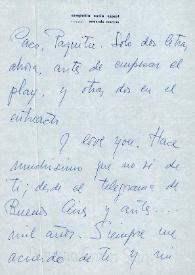 compañía nuria espert
Paco, Paquito. Solo dos letras
ahora, antes de empezar el
play, y otras dos en el
entreacto
I love you. Hace
muchísimo que no sé de
ti; desde el telegrama de
Buenos Aires y antes...
mil años. Siempre me
acuerdo de ti y mi